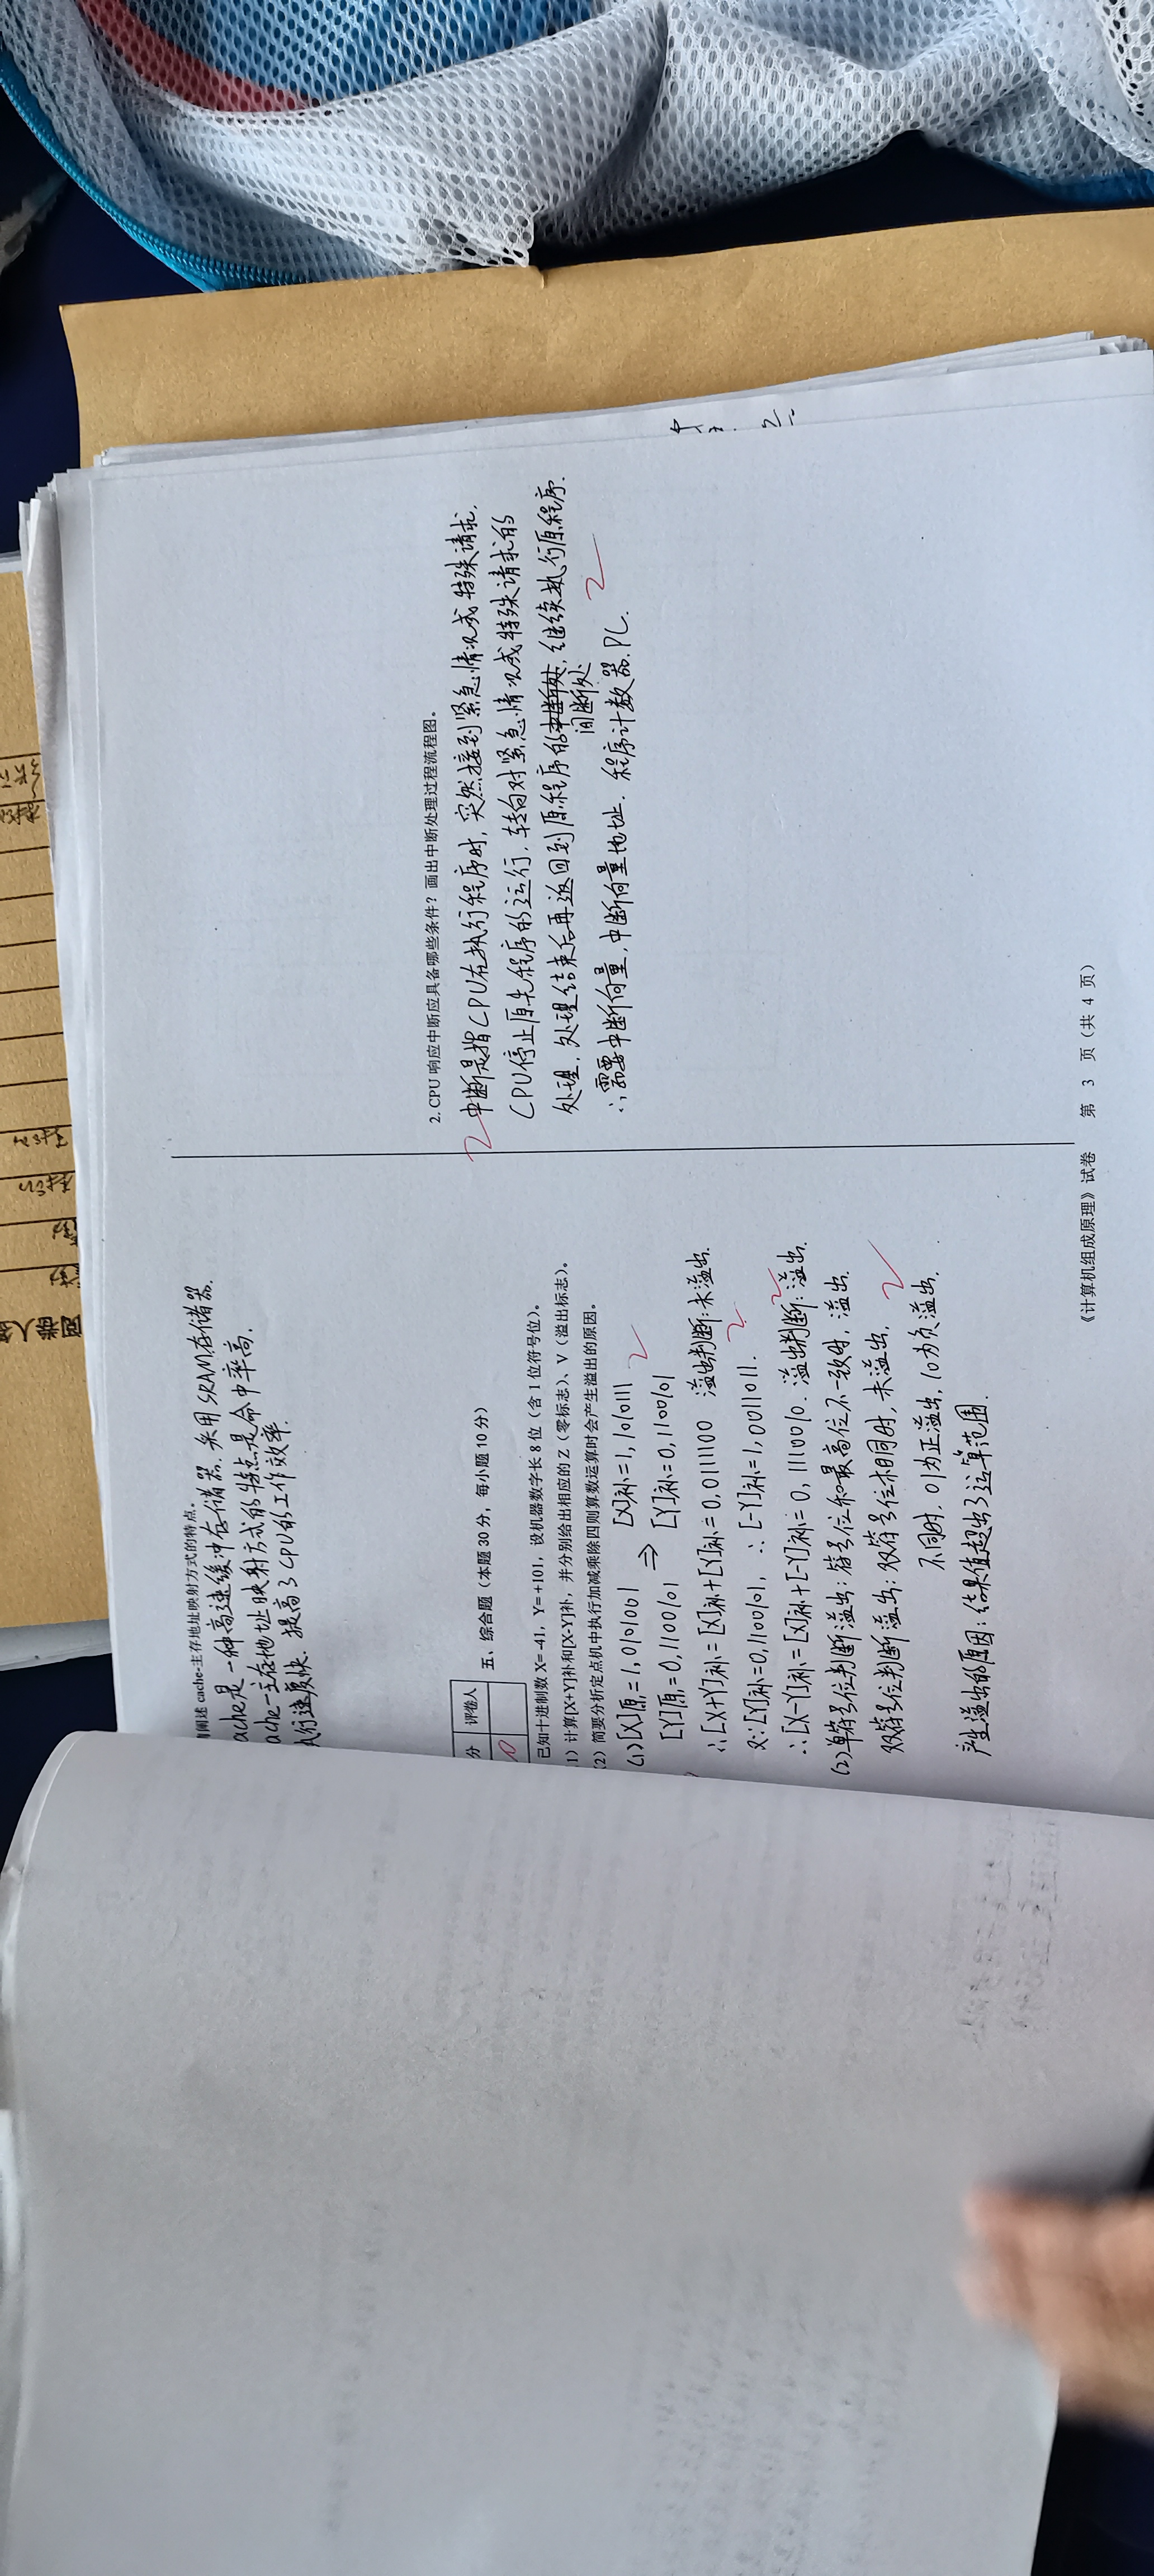 阅卷人签
阐述 cache-主存地址映射方式的特点。
ache是一种高速缓冲存储器.采用SRAM存储器.
ache-主存地址映射方式的特点是命中率高.
执行速度快.提高了CPU的工作效率.
分 评卷人
五、综合题（本题 30 分，每小题 10 分）
已知十进制数 X= -41，Y= +101，设机器数字长 8 位（含 1 位符号位）。
1）计算[X+Y]补和[X-Y]补，并分别给出相应的 Z（零标志）、V（溢出标志）。
（2）简要分析定点机中执行加减乘除四则算数运算时会产生溢出的原因。
(1)[X]原=1,0101001 ⇒ [X]补=1,1010111 2
[Y]原=0,1100101 [Y]补=0,1100101
∴[X+Y]补=[X]补+[Y]补=0,0111100 溢出判断:未溢出.
又∵[Y]补=0,1100101, ∴[-Y]补=1,0011011. 2
∴[X-Y]补=[X]补+[-Y]补=0,1110010. 溢出判断:溢出. 2
(2)单符号位判断溢出:符号位和最高位不一致时,溢出.
双符号位判断溢出:双符号位相同时,未溢出. 2
不同时.01为正溢出,10为负溢出.
产生溢出的原因:结果值超出了运算范围.
2. CPU 响应中断应具备哪些条件？画出中断处理过程流程图。
2 中断是指CPU在执行程序时,突然接到紧急情况或特殊请求.
CPU停止原先程序的运行.转向对紧急情况或特殊请求的
处理.处理结束后再返回到原程序的中断处,继续执行原程序.
间断处
∴需要中断向量,中断向量地址.程序计数器.PC. 2
《计算机组成原理》试卷 第 3 页（共 4 页）